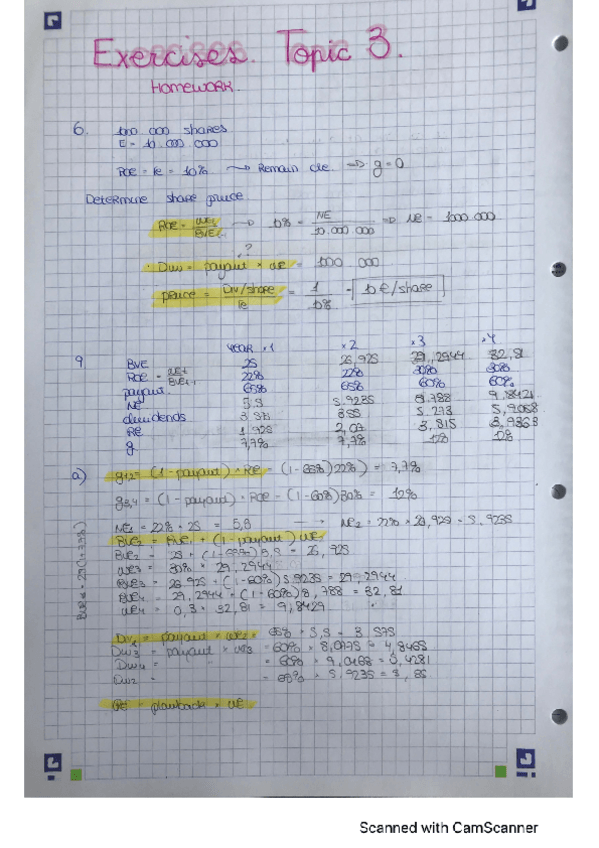 Exercises. Topic 3.
Homework.
6. 100 000 shares
E = 10.000 000
ROE = re = 10% → Remain cte ⇒ g=0
Determine share price
ROE = → 10% = NE / 10.000 000 ⇒ NE = 1000 000
?
Div1 = payout × NE = 100 000
price = Div/share / re = 1 / 10% = 10€/share
YEAR +1 +2 +3 +4
9 BVE 25 26,925 29,2944 32,81
ROE = 22% 22% 30% 30%
payout 65% 65% 60% 60%
NE 5,5 5.9235 8.788 9.8421
dividends 3.575 5.273
RE 1.925 2,07 3,515
g 7,7% 7,7% 12% 12%
a) g1,2 = (1 - payout) · ROE = (1-65%)22%) = 7,7%
g3,4 = (1 - payout) · ROE = (1-60%)30% = 12%
NE1 = 22% · 25 = 5,5 → NE2 = 22% · 26,925 = 5.9235
BVE2 = BVE1 + (1-payout) NE
BVE2 = 25 + (1-65%)5,5 = 26,925
NE3 = 30% · 29,2944
BVE3 = 26.925 + (1-60%)5.9235 = 29,2944
BVE4 = 29,2944 + (1-60%)8,788 = 32,81
NE4 = 0,3 · 32,81 = 9,8429
Div1 = payout × 65% · 5,5 = 3.575
Div3 = payout × NE3 = 60% × 8,0775 = 4,8465
Div4 = = 60% × 9,0468 = 5,4281
Div2 = = 65% × 5.9235 = 3,85
RE = plowback × NE
Scanned with CamScanner